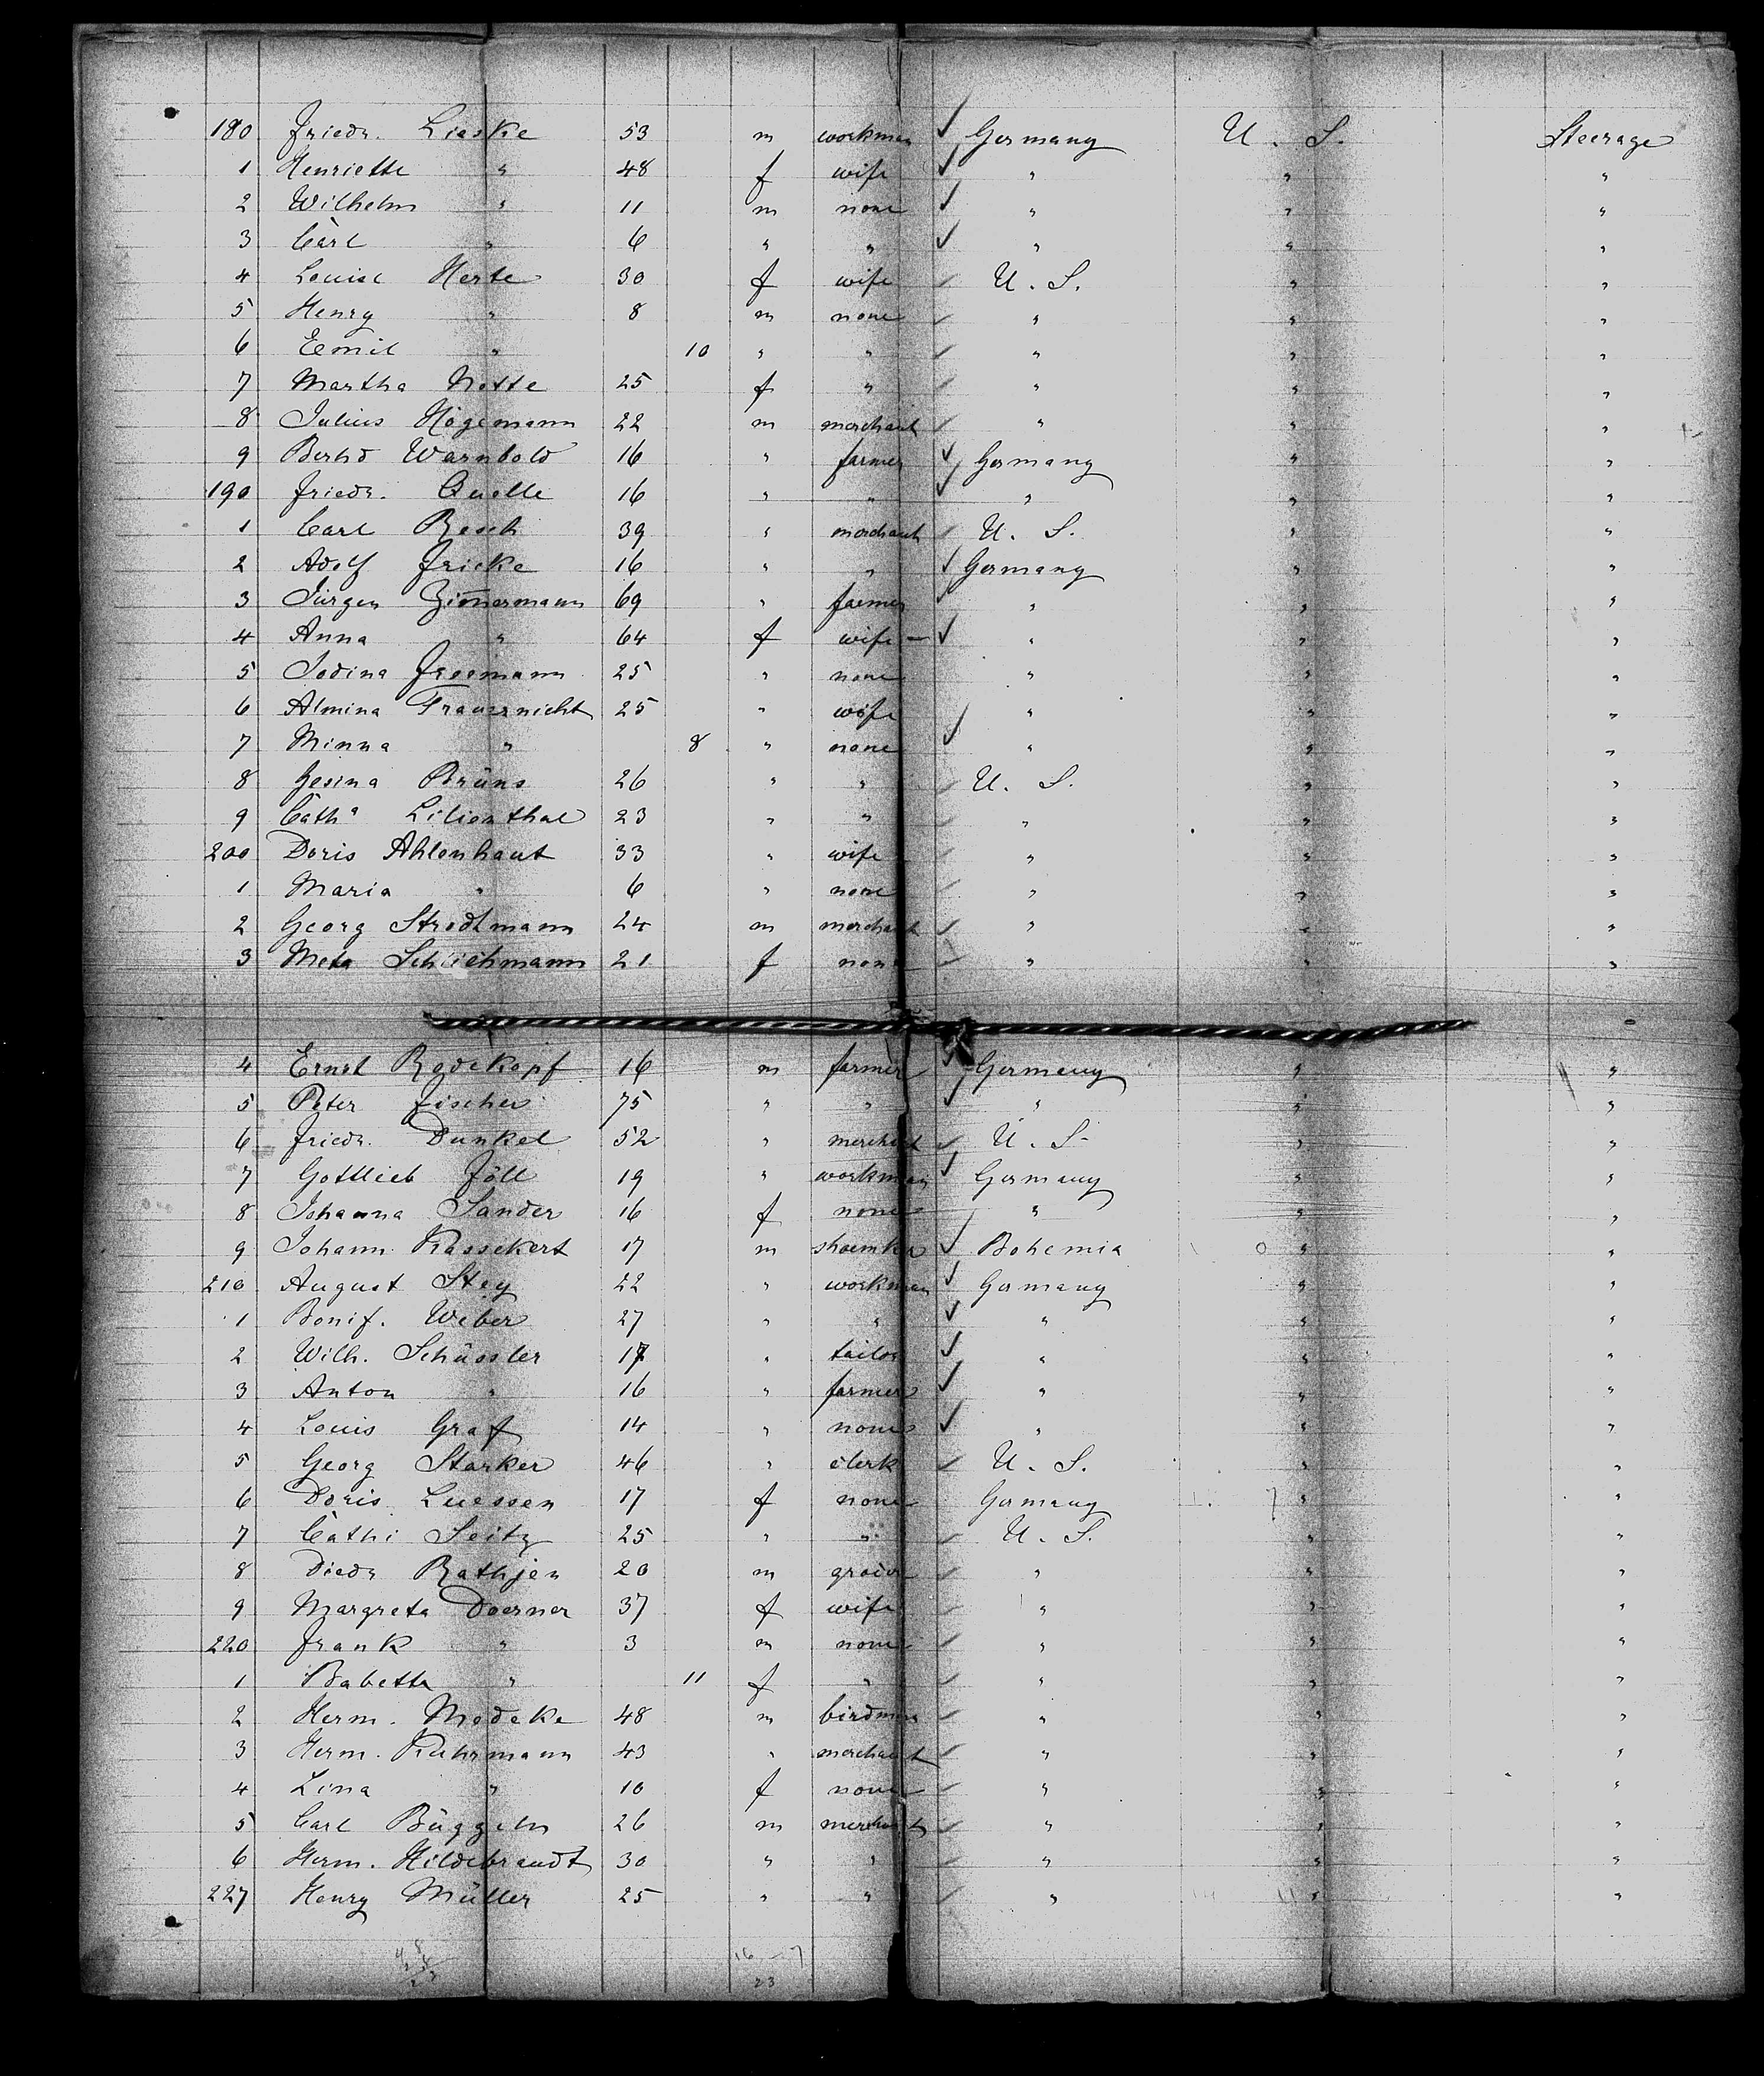 180 Friedr. Lieske 53 m workman ✓ Germany U. S. Steerage
1 Henriette " 48 f wife ✓ " " "
2 Wilhelm " 11 m none ✓ " " "
3 Carl " 6 " " ✓ " " "
4 Louise Herte 30 f wife ✓ U. S. " "
5 Henry " 8 m none ✓ " " "
6 Eemil " 10 " " ✓ " " "
7 Martha Notte 25 f " ✓ " " "
8 Julius Högemann 22 m merchant ✓ " " "
9 Bernd Warnbold 16 " farmer ✓ Germany " "
190 Friedr. Quelle 16 " " ✓ " " "
1 Carl Resch 39 " merchant ✓ U. S. " "
2 Adolf Fricke 16 " " ✓ Germany " "
3 Jürgen Zim̄ermann 69 " farmer ✓ " " "
4 Anna " 64 f wife – ✓ " " "
5 Jodina Freemann 25 " none " " "
6 Almina Frauernicht 25 " wife ✓ " " "
7 Minna " 8 " none ✓ " " "
8 Gesina Brüns 26 " " ✓ U. S. " "
9 Catha Lilienthal 23 " " ✓ " " "
200 Doris Ahlenhaut 33 " wife ✓ " " "
1 Maria " 6 " none ✓ " " "
2 Georg Strodtmann 24 m merchant ✓ " " "
3 Meta Schliehmann 21 f none ✓ " " "
4 Ernst Rodekopf 16 m farmer ✓ Germany " "
5 Peter Fischer 75 " " ✓ " " "
6 Friedr. Dunkel 52 " merchant ✓ U. S. " "
7 Gottlieb Föll 19 " workman ✓ Germany " "
8 Johanna Sander 16 f none " " "
9 Johann Rassekert 17 m shoemker ✓ Bohemia " "
210 August Stey 22 " workman ✓ Germany " "
1 Bonif. Weber 27 " " ✓ " " "
2 Wilh. Schüssler 17 " tailor ✓ " " "
3 Anton " 16 " farmer ✓ " " "
4 Louis Graf 14 " none ✓ " " "
5 Georg Starker 46 " clerk ✓ U. S. " "
6 Doris Luessen 17 f none Germany " "
7 Cathi Seitz 25 " " ✓ U. S. " "
8 Diedr Rathjen 20 m grocer ✓ " " "
9 Margreta Doerner 37 f wife ✓ " " "
220 Frank " 3 m none ✓ " " "
1 Babetta " 11 f " ✓ " " "
2 Herm. Medeke 48 m birdman ✓ " " "
3 Herm. Ruhrmann 43 " merchant ✓ " " "
4 Lina " 10 f none ✓ " " "
5 Carl Büggeln 26 m merchant ✓ " " "
6 Herm. Hildebrandt 30 " " ✓ " " "
227 Henry Müller 25 " " ✓ " " "
16 – 7
23